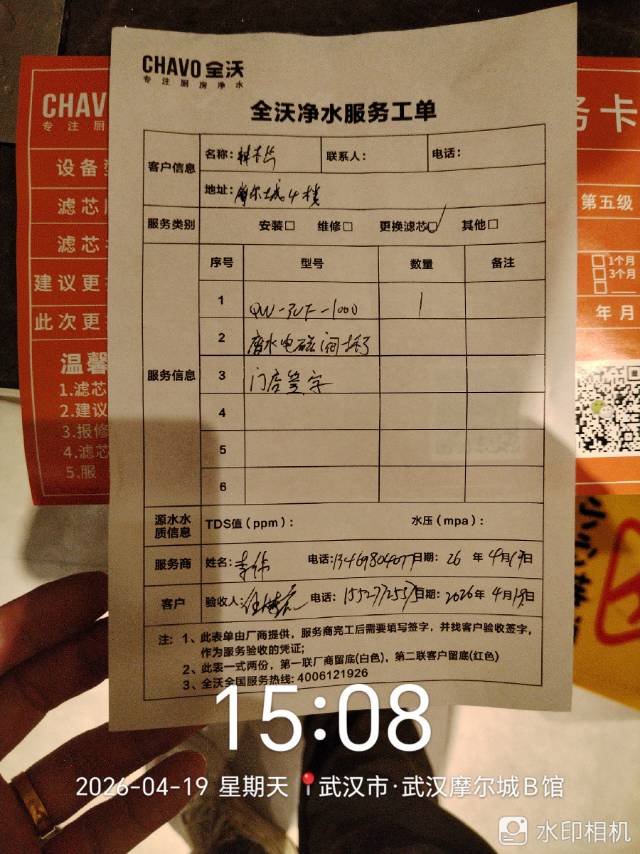 CHAVO 全沃
专注厨房净水
全沃净水服务工单
客户信息
名称：林上長
联系人：
电话：
地址：摩尔城4楼
服务类别
安装□ 维修□ 更换滤芯□✓ 其他□
服务信息
序号 型号 数量 备注
1 QW-3UF-1000 1
2 废水电磁阀坏了
3 门店签字
4
5
6
源水水质信息
TDS值（ppm）： 水压（mpa）：
服务商
姓名：李伟 电话：13469804077 日期：26 年 4月19日
客户
验收人： 电话： 日期：2026 年 4月19日
注：1、此表单由厂商提供，服务商完工后需要填写签字，并找客户验收签字，
作为服务验收的凭证；
2、此表一式两份，第一联厂商留底(白色)，第二联客户留底(红色)
3、全沃全国服务热线：4006121926
CHAV
专注厨
设备
滤芯
滤芯
建议更
此次更
温馨
1.滤芯
2.建议
3.报修
4.滤芯
5.服
务卡
第五级
□1个月
□3个月
年 月
15:08
2026-04-19 星期天 武汉市·武汉摩尔城B馆
水印相机